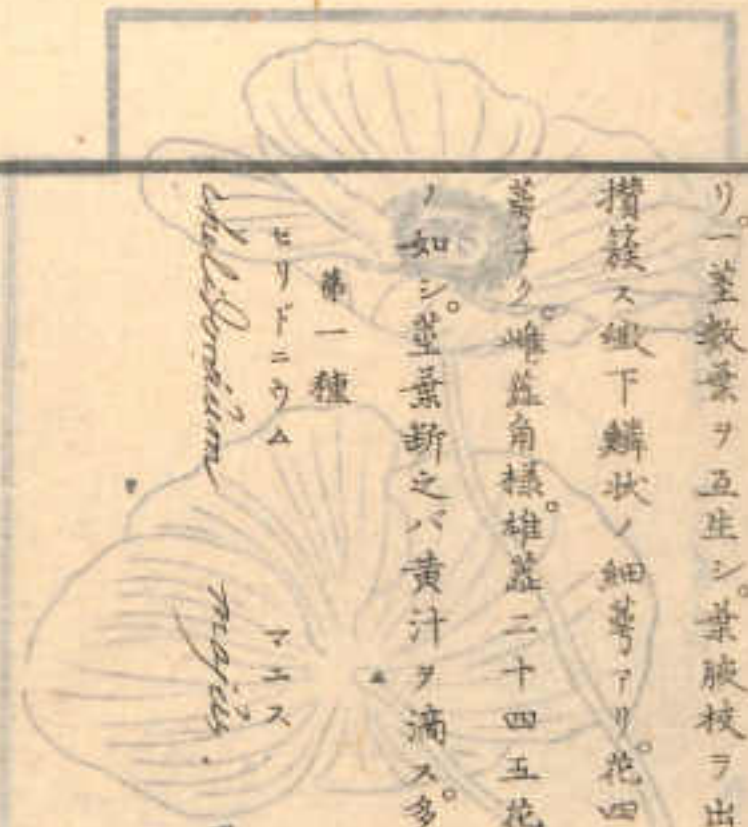 リ。一莖數葉ヲ互生シ。葉腋枝ヲ出
攢簇ス。纖下鱗狀ノ細萼アリ。花四
萼ナク。雌蕊角樣。雄蕊二十四五花
ノ如シ。莖葉斷之バ黃汁ヲ滴ス。多
第一種
ヒリドニウム マユス
chelidonium majus.